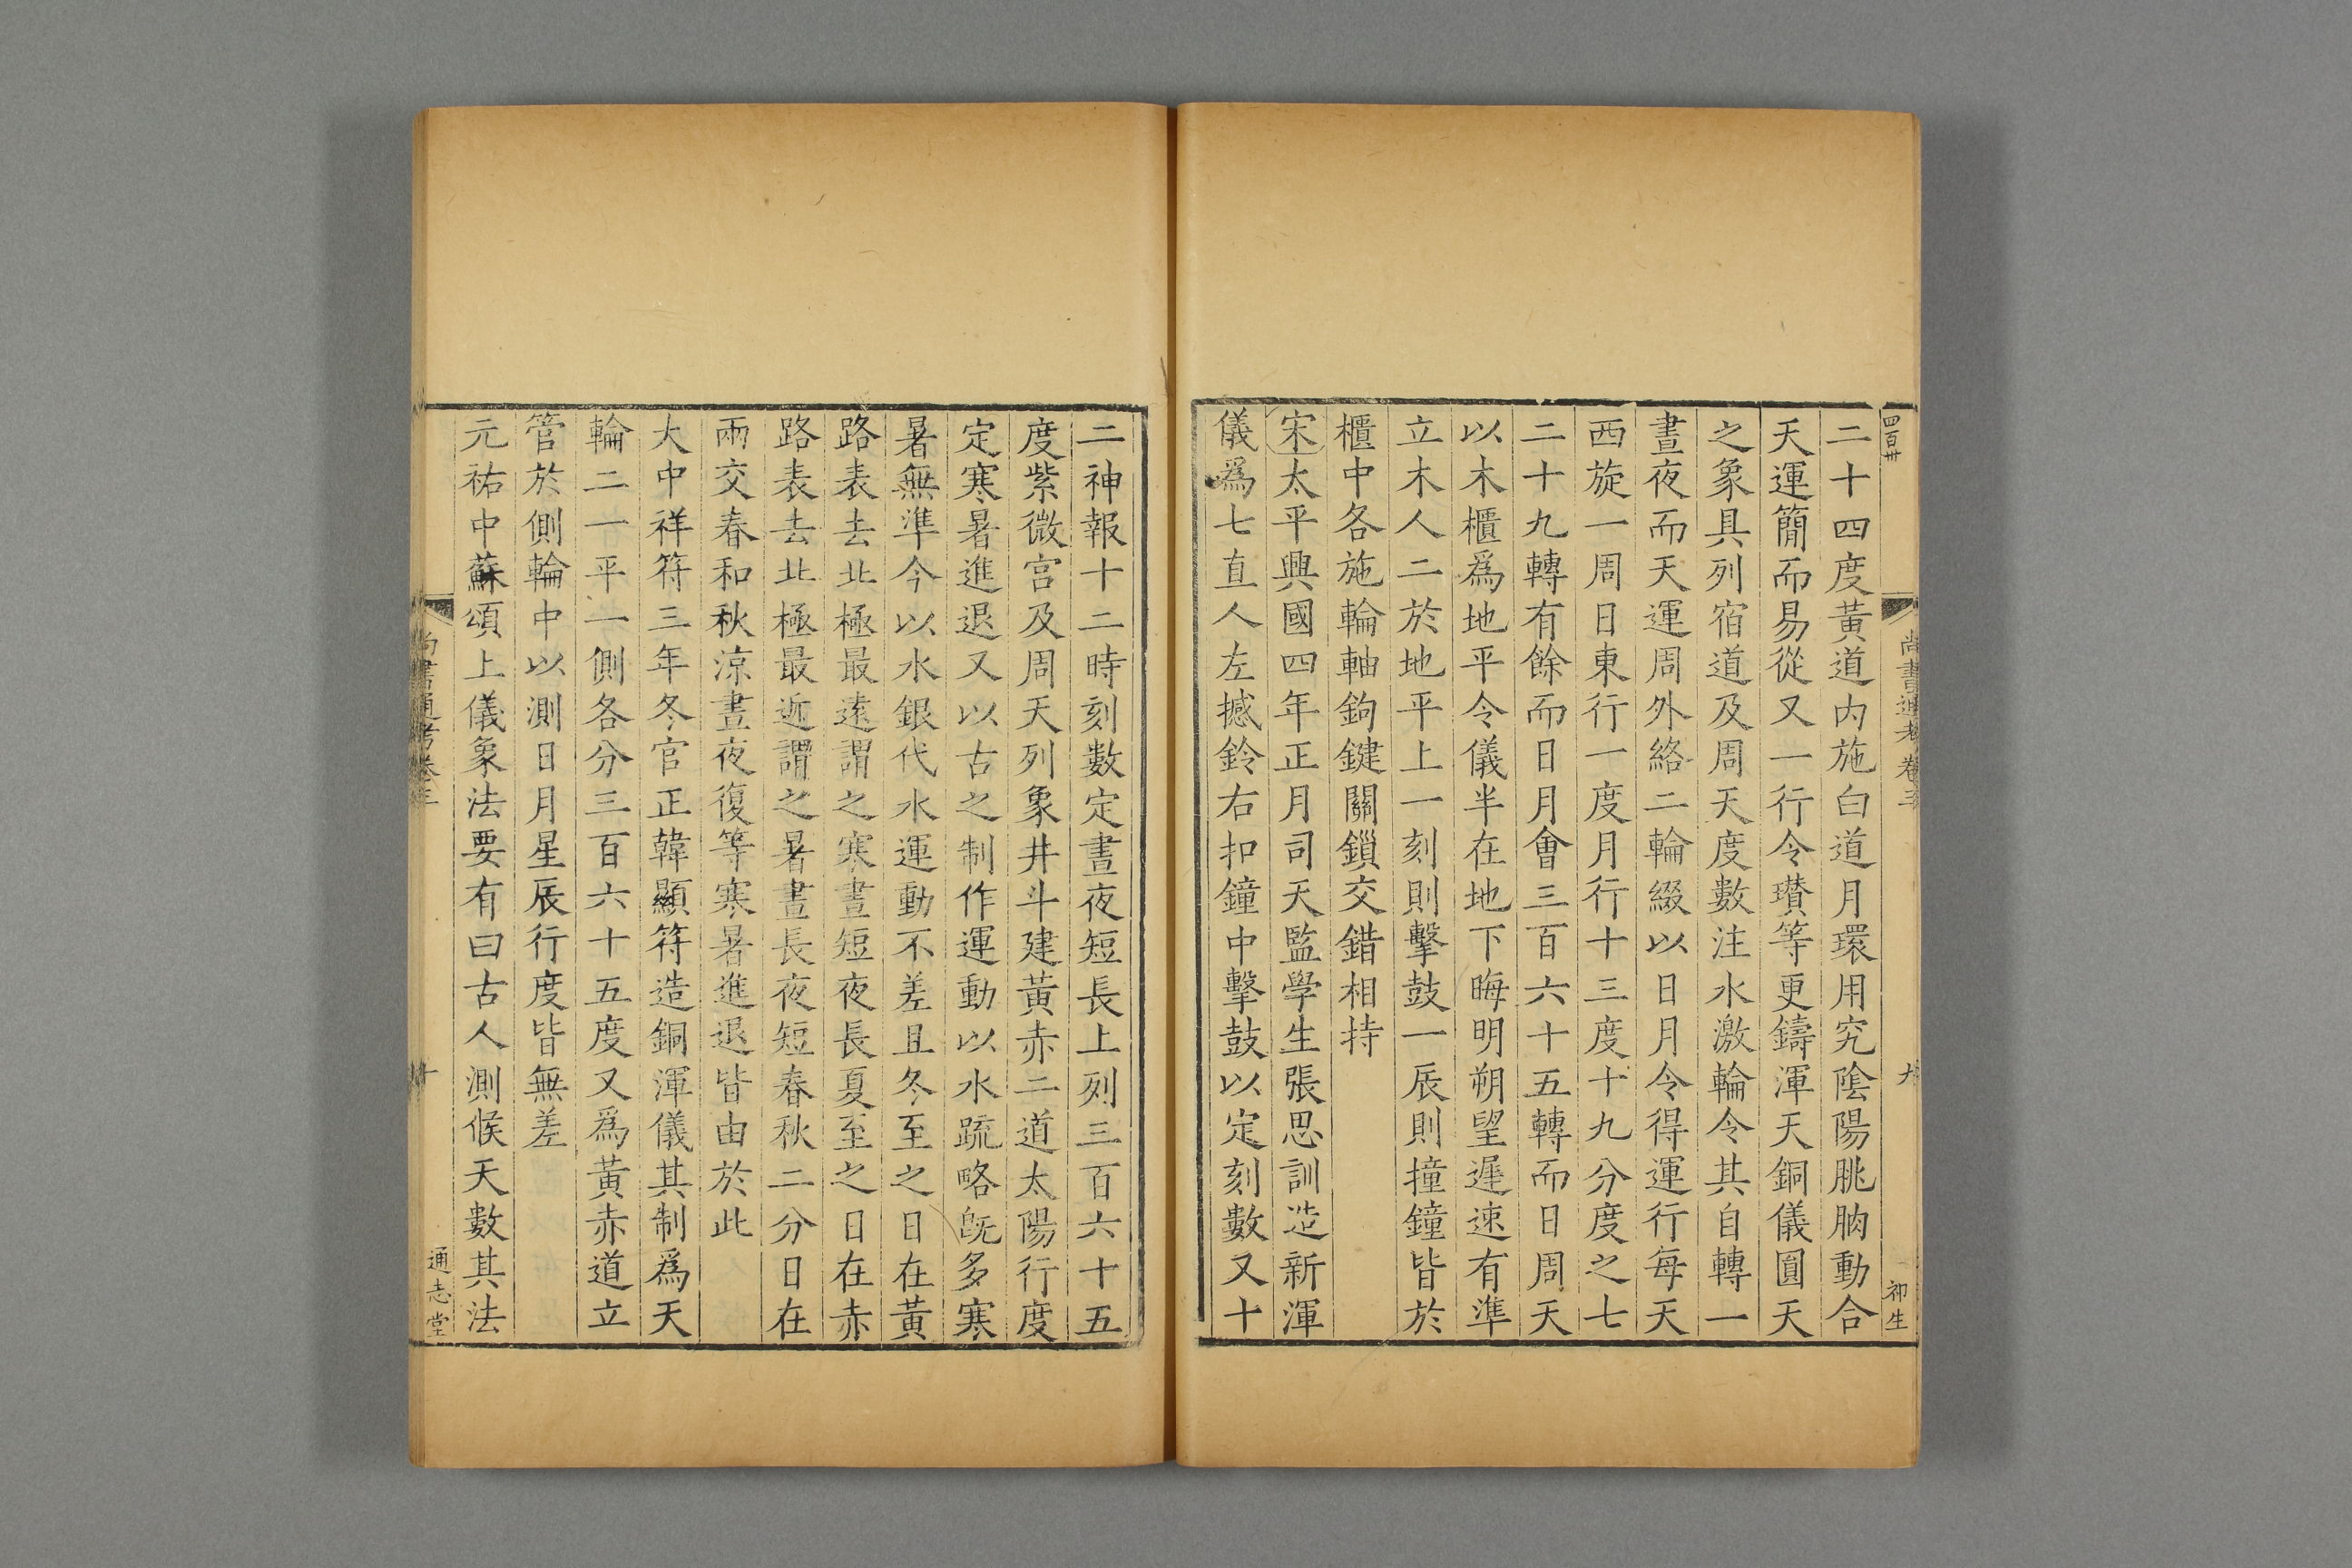 四百廾
尚書通考卷三
九
祁生
二十四度黃道内施白道月環用究陰陽朓朒動合
天運簡而易從又一行令瓚等更鑄渾天銅儀圓天
之象具列宿道及周天度數注水激輪令其自轉一
晝夜而天運周外絡二輪綴以日月令得運行每天
西旋一周日東行一度月行十三度十九分度之七
二十九轉有餘而日月會三百六十五轉而日周天
以木櫃爲地平令儀半在地下晦明朔望遲速有準
立木人二於地平上一刻則擊鼓一辰則撞鐘皆於
櫃中各施輪軸鉤鍵關鎻交錯相持
宋太平興國四年正月司天監學生張思訓造新渾
儀爲七直人左撼鈴右扣鐘中擊鼓以定刻數又十
二神報十二時刻數定晝夜短長上列三百六十五
度紫微宮及周天列象井斗建黃赤二道太陽行度
定寒暑進退又以古之制作運動以水疏略旣多寒
暑無準今以水銀代水運動不差且冬至之日在黃
路表去北極最遠謂之寒晝短夜長夏至之日在赤
路表去北極最近謂之暑晝長夜短春秋二分日在
兩交春和秋涼晝夜復等寒暑進退皆由於此
大中祥符三年冬官正韓顯符造銅渾儀其制爲天
輪二一平一側各分三百六十五度又爲黃赤道立
管於側輪中以測日月星辰行度皆無差
元祐中蘇頌上儀象法要有曰古人測候天數其法
尚書通考卷三
十
通志堂